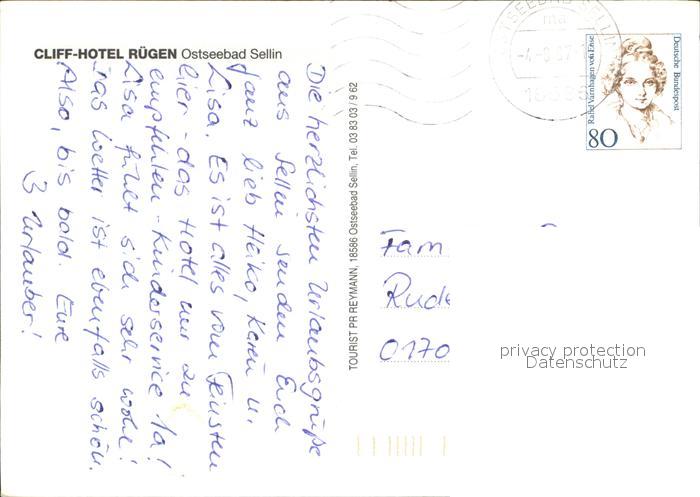 CLIFF-HOTEL RÜGEN Ostseebad Sellin
Die herzlichsten Urlaubsgrüße
aus Sellin senden Euch
ganz lieb Heiko, Karen u.
Lisa. Es ist alles vom Feinsten
hier - das Hotel nur zu
empfehlen - Kinderservice 1a!
Lisa fühlt sich sehr wohl!
Das Wetter ist ebenfalls schön.
Also, bis bald. Eure
3 Urlauber!
TOURIST PR REYMANN, 18586 Ostseebad Sellin, Tel. 03 83 03 / 9 62
OSTSEEBAD SELLIN
ma
-4.-8.97
18586
Deutsche Bundespost
Rahel Varnhagen von Ense
80
Fam
Rude
0170
privacy protection
Datenschutz